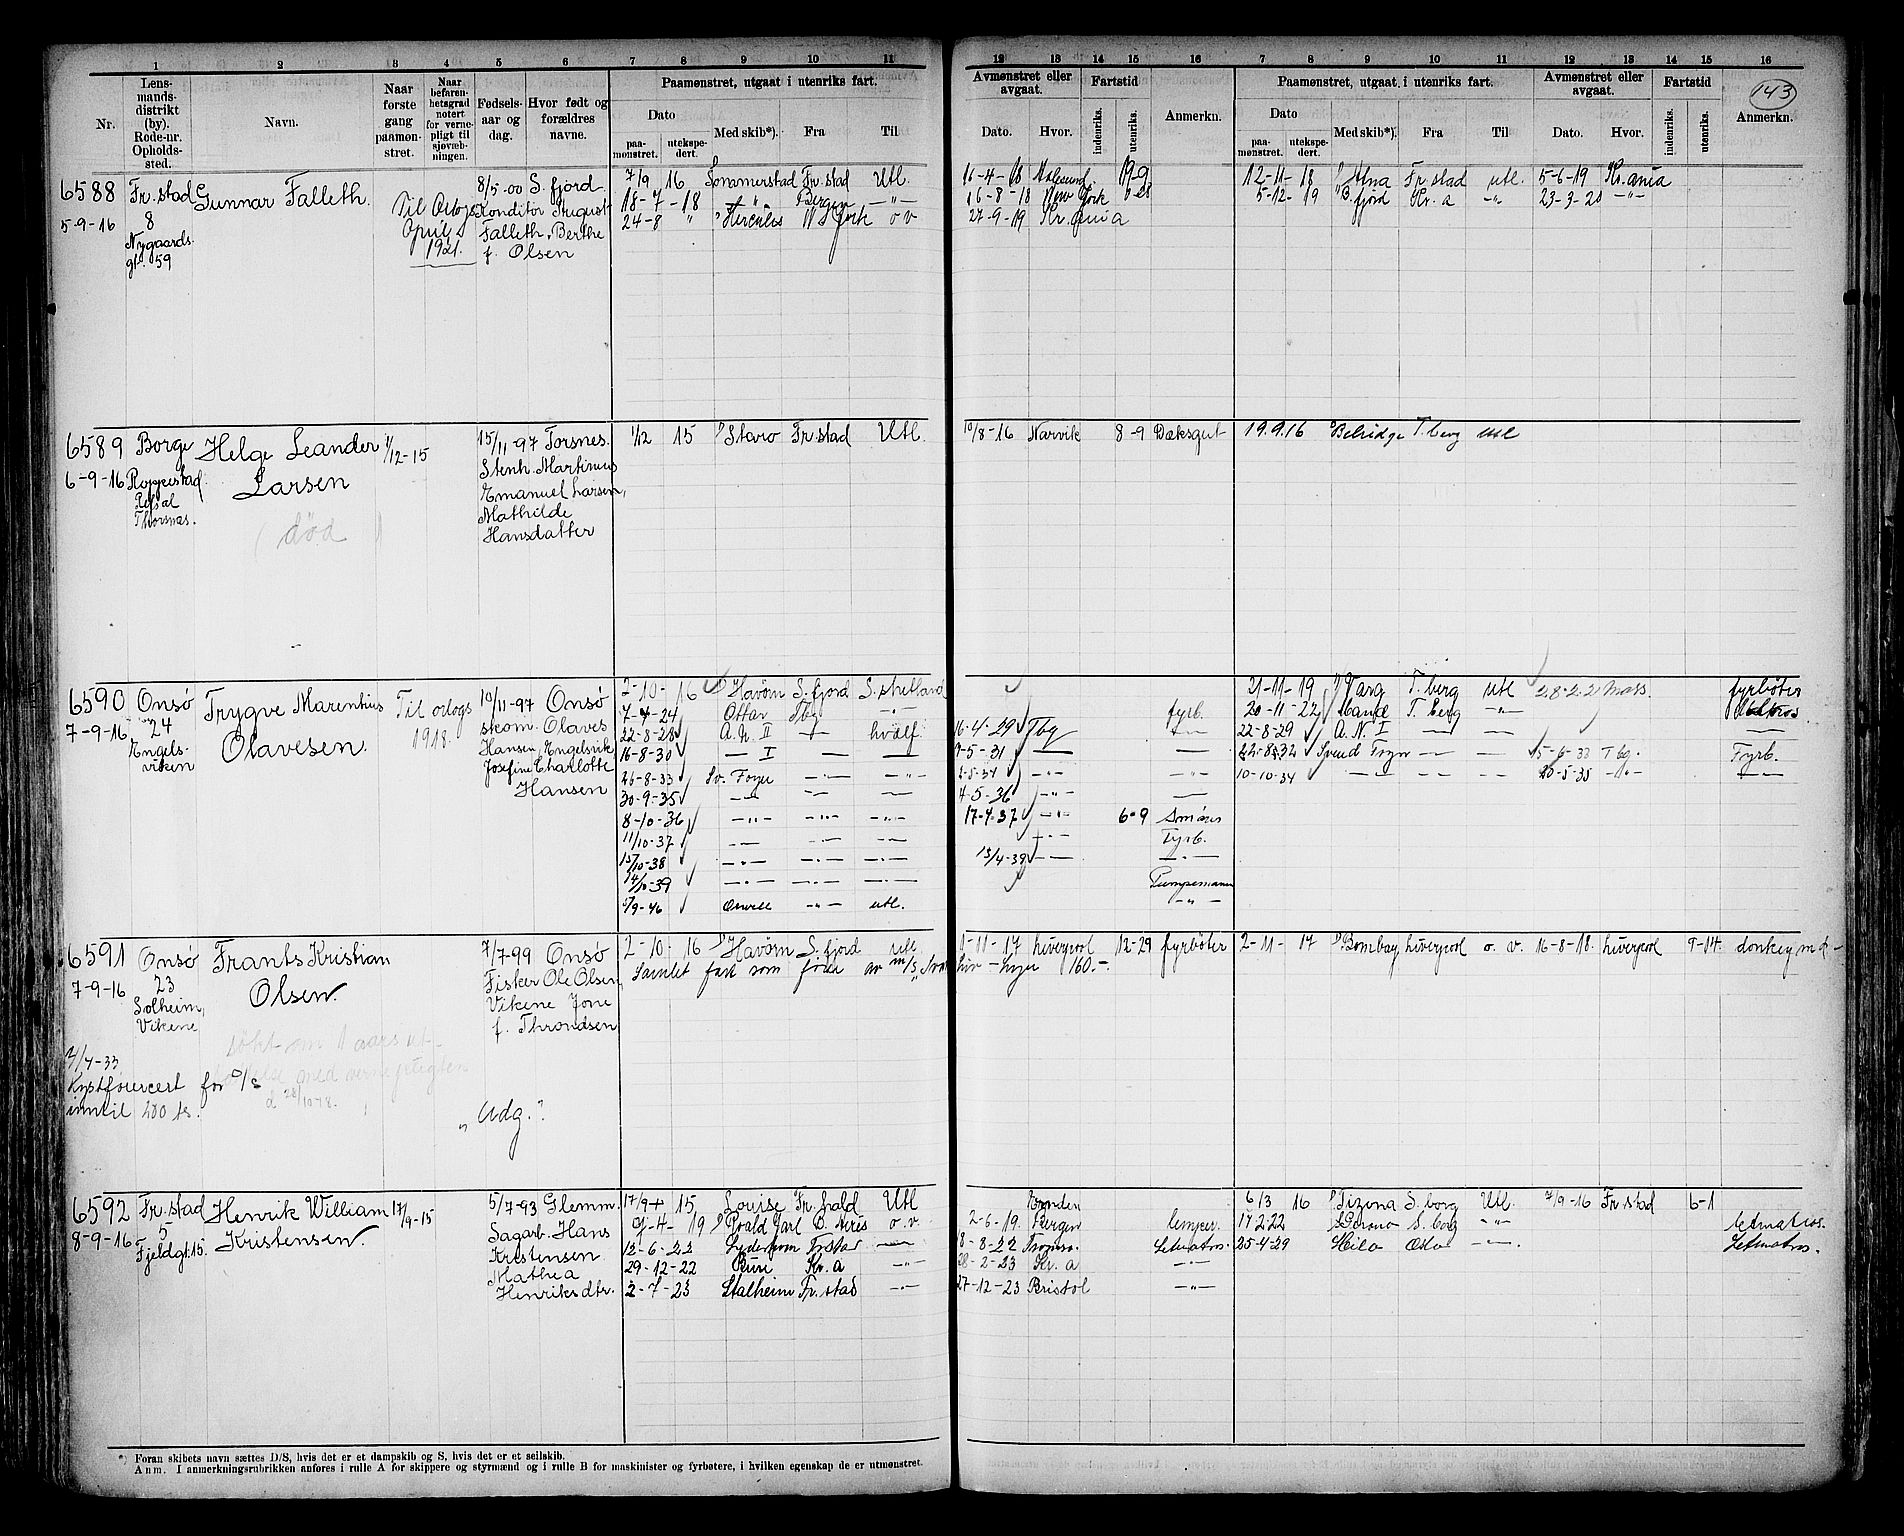 143
1 2 3 4 5 6 7 8 9 10 11 12 13 14 15 16 7 8 9 10 11 12 13 14 15 16
Nr.
Lens-
mands-
distrikt
(by).
Rode-nr.
Opholds-
sted.
Navn.
Naar
første
gang
paamøn-
stret.
Naar
befaren-
hetsgrad
notert
for verne-
pligt til
sjøvæb-
ningen.
Fødsels-
aar og
dag.
Hvor født og
forældres
navne.
Paamønstret, utgaat i utenriks fart.
Dato
paa-
mønstret.
utekspe-
dert.
Med skib*).
Fra
Til
Avmønstret eller
avgaat.
Dato.
Hvor.
Fartstid
indenriks.
utenriks.
Anmerkn.
Paamønstret, utgaat i utenriks fart.
Dato
paa-
mønstret.
utekspe-
dert.
Med skib*).
Fra
Til
Avmønstret eller
avgaat.
Dato.
Hvor.
Fartstid
indenriks.
utenriks.
Anmerkn.
6588
5-9-16
Fr.stad
8
Nygaards
gt. 59
Gunnar Falleth.
Til Orlogs
April
1921.
8/5-00 S. fjord.
Konditor August
Falleth, Berthe
f. Olsen
7/9 16 Sommerstad Fr. stad Utl.
18-7-18 — " — Bergen — " —
24-8 " Hercules N. York o v
16-4-18
16-8-18 New York
27-9-19 Kr.ania
12-11-18 Atna Fr stad utl. 5-6-19 Kr.ania
5-12-19 B.fjord Kr.a — " — 23-3-20 — " —
6589
6-9-16
Borge
Roppestad
Thorsnæs.
Helge Leander
Larsen
(død)
1/12-15
15/11-97 Torsnes.
Stenh. Martinus
Emanuel Larsen,
Mathilde
Hansdatter
1/12 15 Stavo Fr.stad Utl.
10/8-16 Narvik 8-9 Dæksgut 19.9.16 Belridge T.berg utl
6590
7-9-16
Onsø
24
Engels-
viken
Trygve Marenthius
Olavesen.
Til orlogs
1918.
10/11-97 Onsø
skom. Olaves
Hansen, Engelsvik
Josefine Charlotte
Hansen
2-10-16 Havørn S. fjord S. shetland
7-4-24 Ottar Tbg — " —
22-8-28 A.N. II — " — hvalf.
16-8-30 — I — —
26-8-33 Sv. Foyn — " — — " —
30-9-35 — " — — " — — " —
8-10-36 — " — — " — — " —
11/10-37 — " — — " — — " —
15/10-38 — " — — " — — " —
14/10-39 — " — — " — — " —
9-46 Orwell — " — utl.
fyrb.
16-4-29 Tbg — " —
9-5-31 — " — — " —
5-34 — " — — " —
4-5-36 — " — — " —
17-4-37 — " — 6-9 Smører
— " — Fyrb.
13/4-39 — " — — " —
Pumpemann
— " —
21-11-19 Varg T. berg utl 28-2-2 Mass. fyrbøter
20-11-22 T. berg — " —
22-8-29 A.N. I — " — — " —
32 Svend Foyn — — 15-6-33 Tbg. Fyrb.
10-10-34 — " — — — 20-5-35 — " — — " —
6591
7-9-16
Onsø
23
Solheim,
Vikene
Frants Kristian
Olsen.
7/7-99 Onsø
Fisker Ole Olsen,
Vikene Jone
f. Throndsen
2-10-16 Havørn S. fjord utl
Samlet fart som fører av m/s
1-11-17 Liverpool 12-29 fyrbøter 2-11-17 Bombay Liverpool o. v. 16-8-18. Liverpool 9-14. donkeym
160.-
søkt om 1 aars ut-
med verneplikten
d 28/10-18.
4/4-33
for D/s
inntil 200 ts.
" Udg. "
6592
8-9-16
Fr.stad
5
Fjeldgt. 15.
Henrik William
Kristensen.
17/9-15
5/7-93 Glemm.
Sagarb. Hans
Kristensen
Mathea
Henriksdtr.
17/9 15 Louise Fr. hald Utl
9-4-19 Roald Jarl B. Aires o. v.
12-6-22 Fr stad — " —
29-12-22 Kr. a — " —
2-7-23 Stalheim Fr. stad — " —
2-6-19. Bergen
8-8-22 Tromsø. Letmatros.
28-2-23 Kr. a — " —
27-12-23 Bristol — " —
6/3 16 Tizona S. borg Utl. 7/9-16 Fr stad 6-1
17 2 22 S. borg — " — Letmatros.
25-4-29 Hilo Oslo — " — Letmatros.
*) Foran skibets navn sættes D/S, hvis det er et dampskib og S, hvis det er et seilskib.
Anm. I anmerkningsrubrikken anføres i rulle A for skippere og styrmænd og i rulle B for maskinister og fyrbøtere, i hvilken egenskap de er utmønstret.